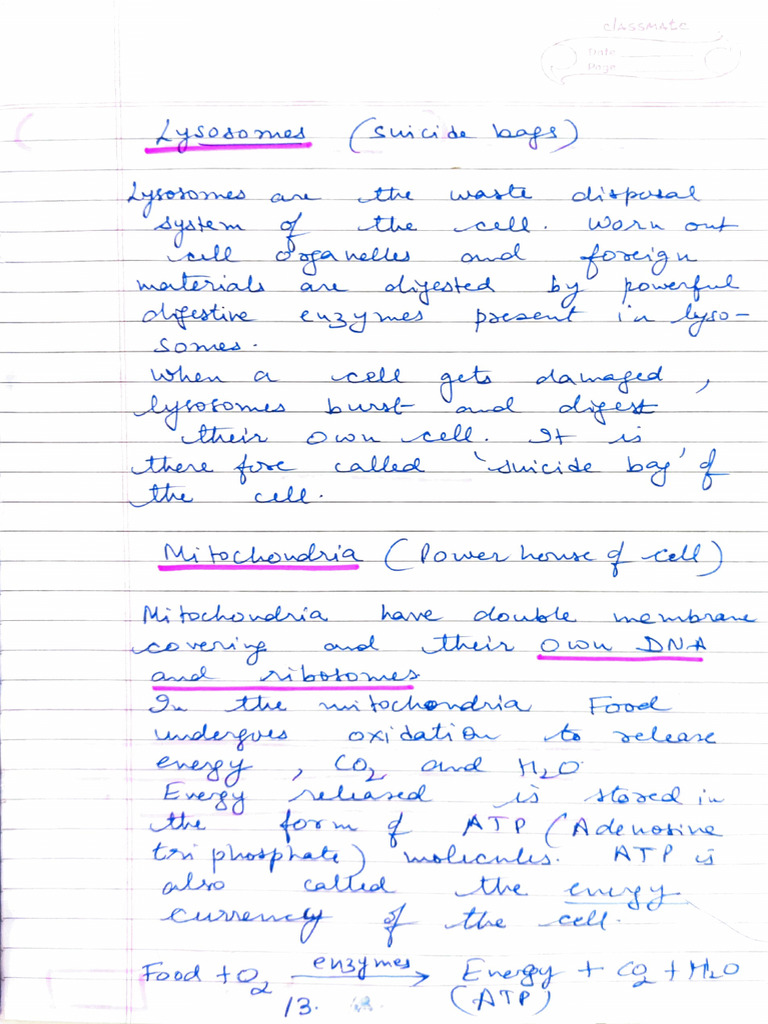 classmate
Date
Page
Lysosomes (suicide bags)
Lysosomes are the waste disposal
system of the cell. Worn out
cell organelles and foreign
materials are digested by powerful
digestive enzymes present in lyso-
somes.
When a cell gets damaged,
lysosomes burst and digest
their own cell. It is
there fore called 'suicide bag' of
the cell.
Mitochondria (Power house of cell)
Mitochondria have double membrane
covering and their own DNA
and ribosomes
In the mitochondria Food
undergoes oxidation to release
energy, CO₂ and H₂O
Energy released is stored in
the form of ATP (Adenosine
tri phosphate) molecules. ATP is
also called the energy
currency of the cell.
Food + O₂ enzymes → Energy + CO₂ + H₂O
(ATP)
13.